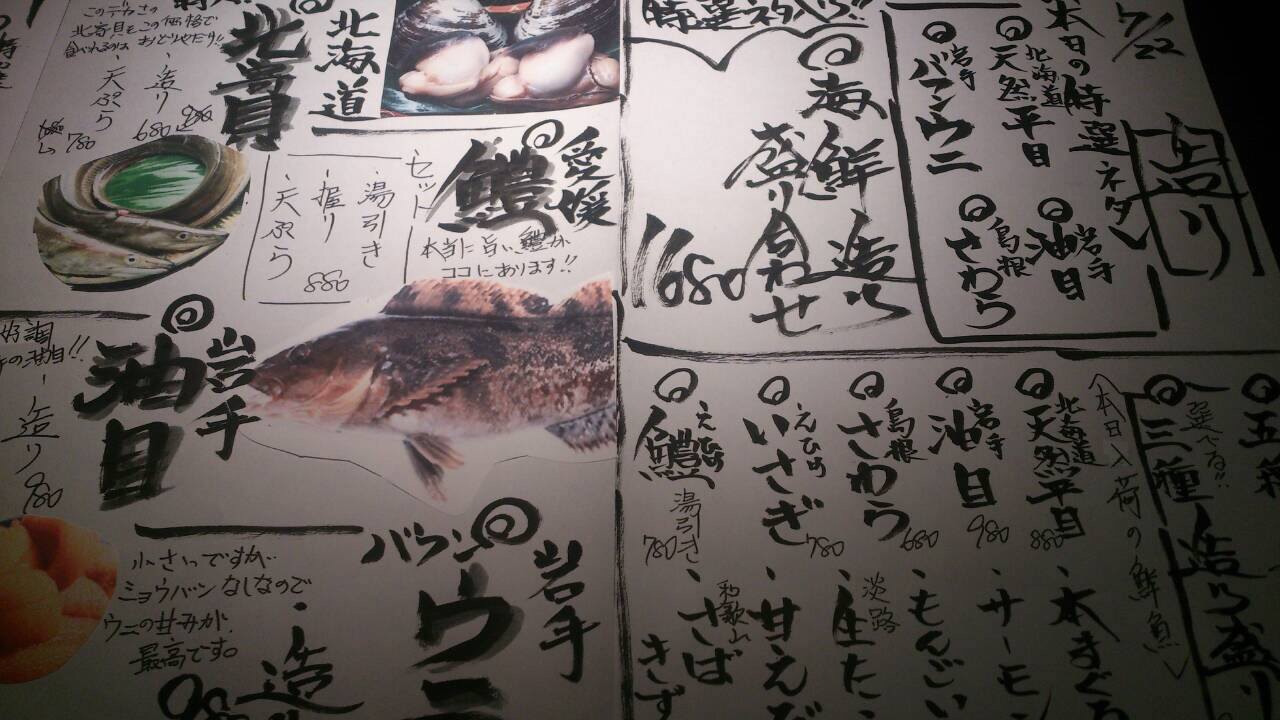 7/22
造り
本日の特選ネタ
北海道
天然平目
岩手
バフンウニ
岩手
油目
島根
さわら
海鮮造り
盛り合わせ
1680
選べる!!
三種造り盛り
本日入荷の鮮魚
北海道
天然平目
880
岩手
油目
980
島根
さわら
680
えひめ
いさぎ
780
えひめ
鱧
湯引き
780
サーモン
もんごい
淡路
生たこ
甘えび
和歌山
さば
きずし
北海道
北寄貝
このデカさの
北寄貝をこの価格で
食べれるのは
造り
680
天ぷら
780
愛媛
鱧
本当に旨い鱧が
ココにあります!!
セット
湯引き
握り
天ぷら
880
岩手
油目
造り
980
岩手
バフン
ウニ
小さいですが
ミョウバンなしなので
ウニの甘みが
最高です。
造り